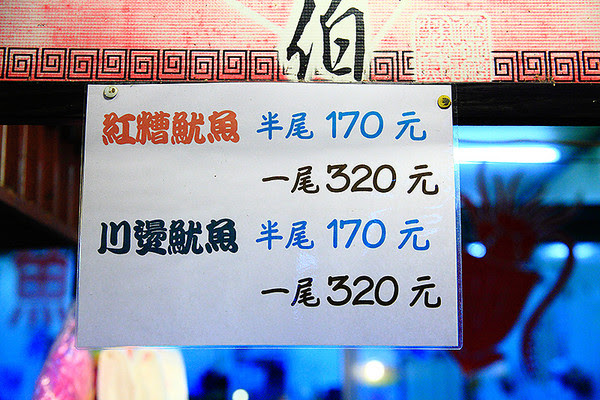 伯
紅糟魷魚 半尾 170 元
一尾 320 元
川燙魷魚 半尾 170 元
一尾 320 元
魚